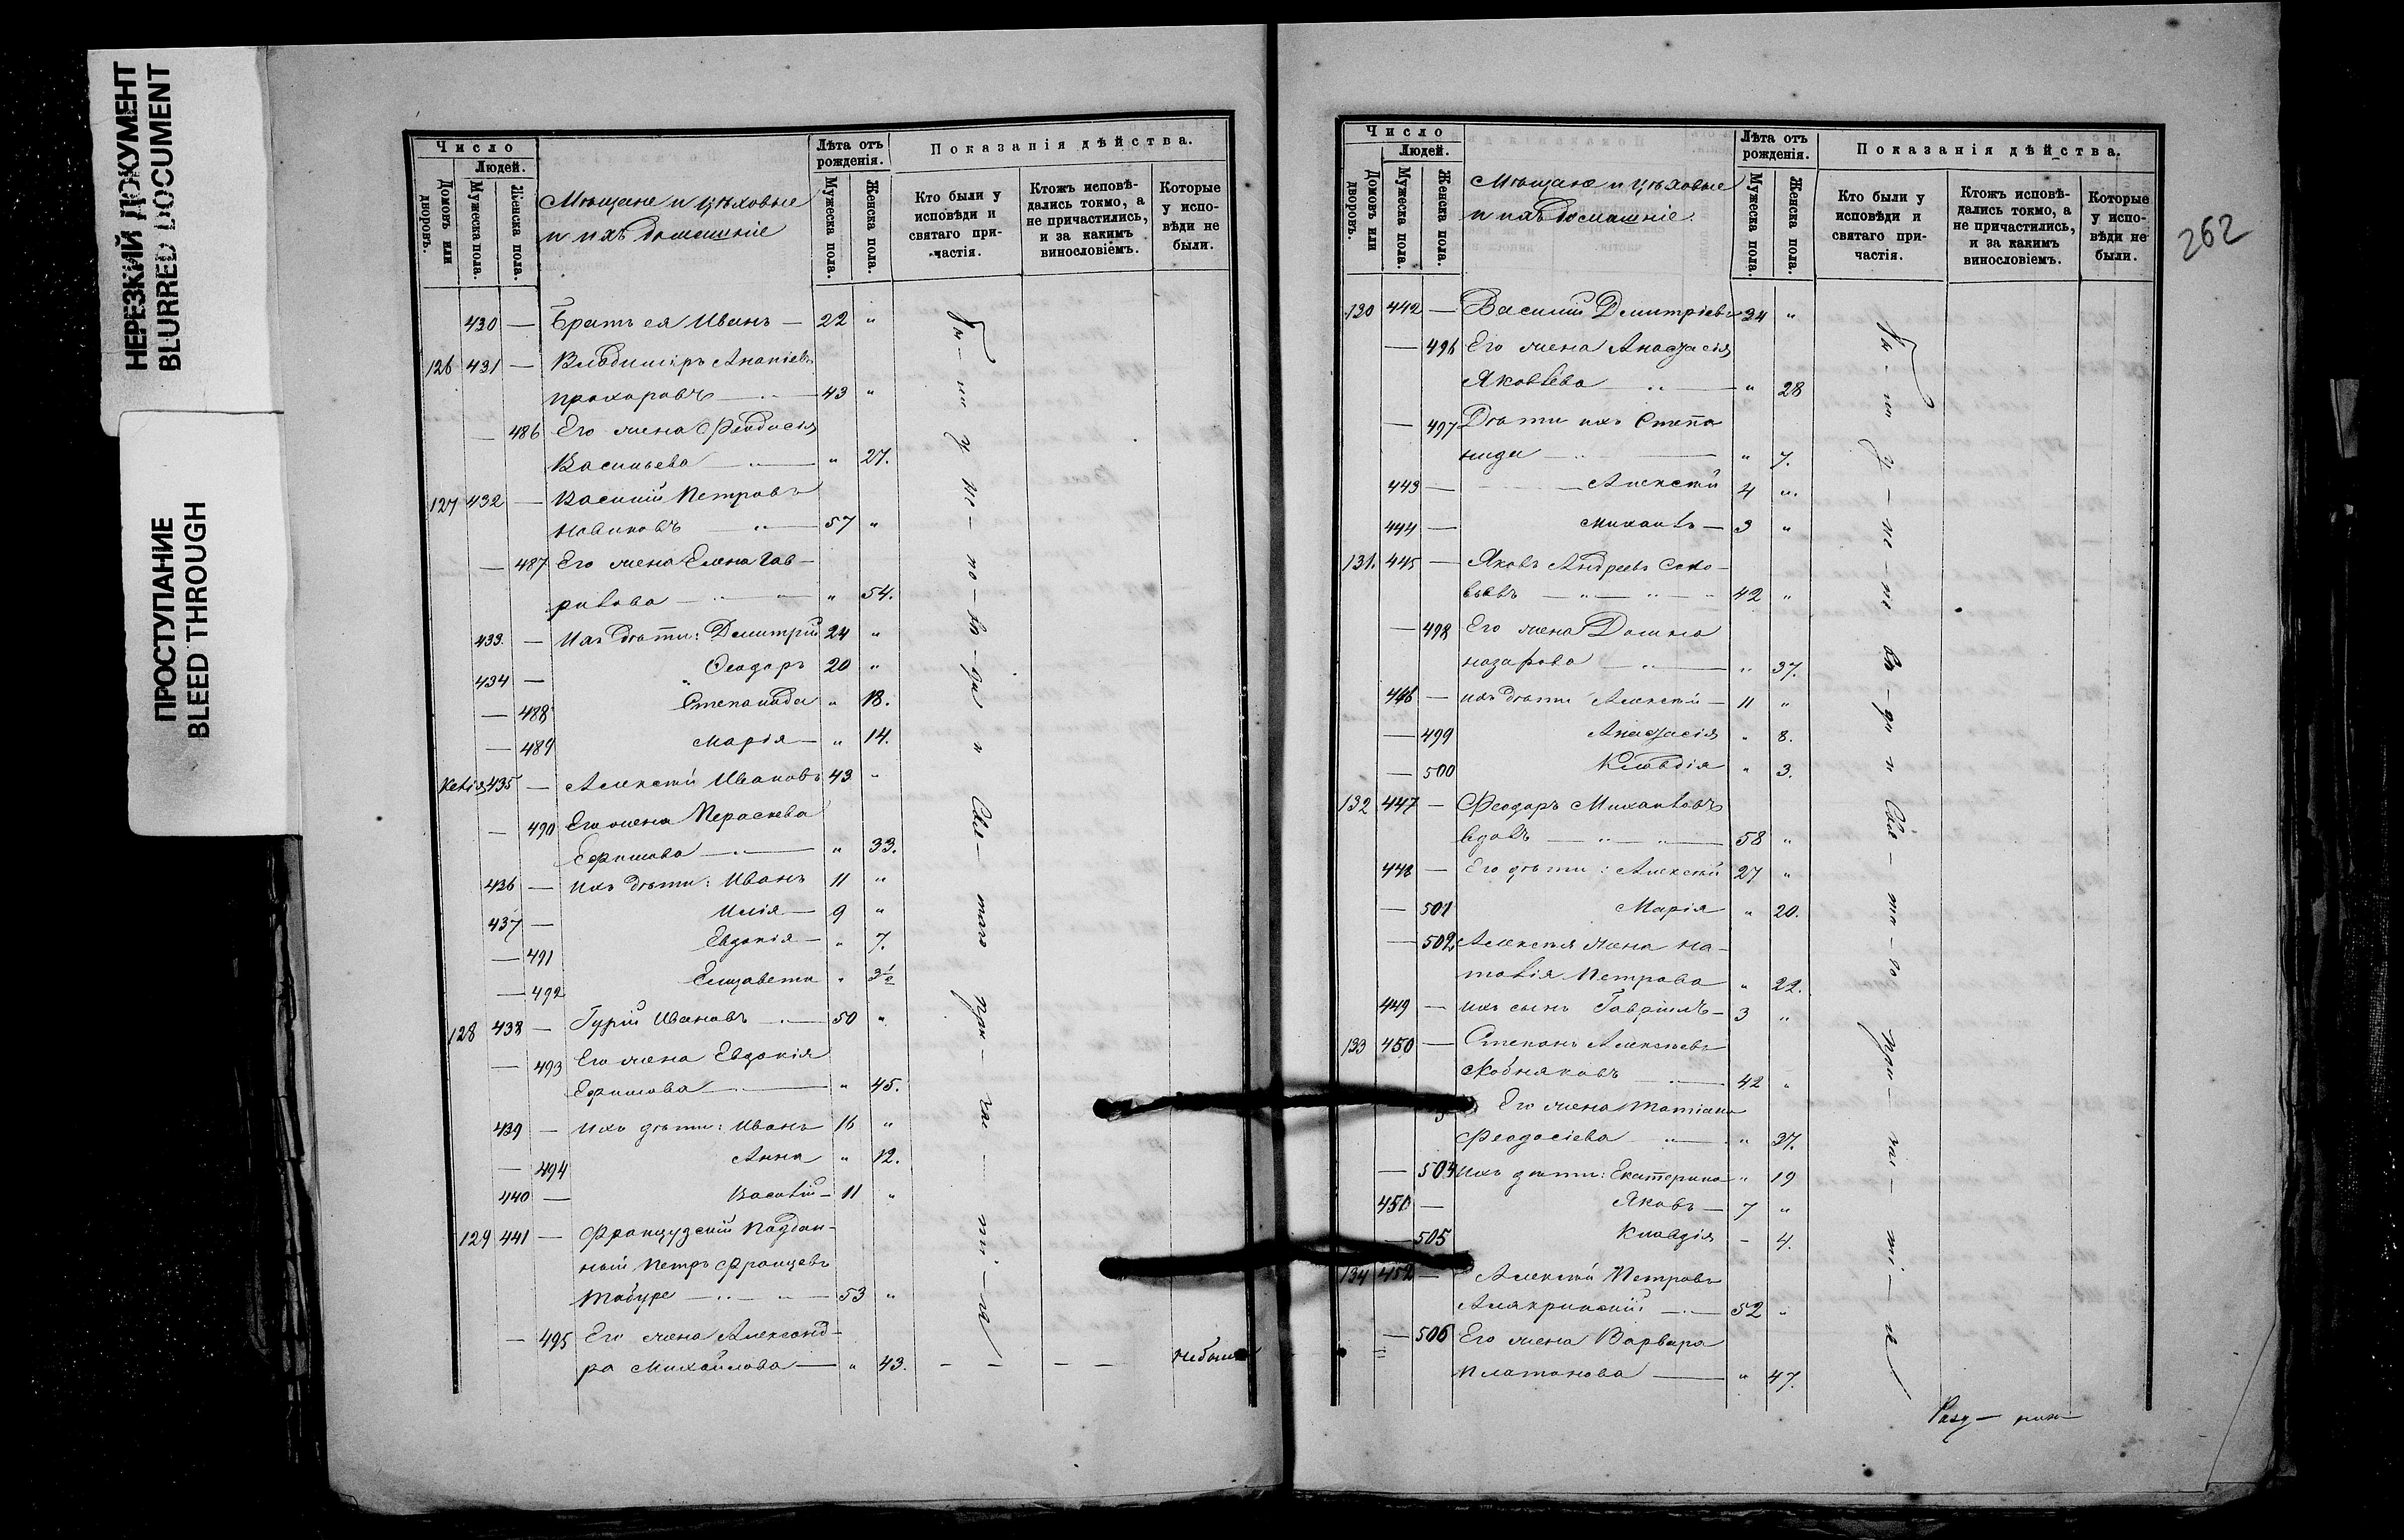 НЕРЕЗКИЙ ДОКУМЕНТ
BLURRED DOCUMENT
ПРОСТУПАНИЕ
BLEED THROUGH
Число
Людей.
Домовъ или дворовъ.
Мужеска пола.
Женска пола.
Мѣщане и цѣховые
и ихъ домашніе
Лѣта отъ рожденія.
Мужеска пола.
Женска пола.
Показанія дѣйства.
Кто были у исповѣди и святаго причастія.
Ктожъ исповѣдались токмо, а не причастились, и за какимъ винословіемъ.
Которые у исповѣди не были.
430 — Братъ ея Иванъ — 22 "
126 431 — Владиміръ Ананіевъ
Прохоровъ — 43 "
— 486 Его жена Феодосія
Васильева — " 27.
127 432 — Василій Петровъ
Новиковъ — " — 57 "
— 487 Его жена Елена Гав-
рилова — " 54.
433. — Ихъ дѣти: Димитрій 24 "
434 — Ѳеодоръ 20 "
— 488 Степанида " 18.
— 489 Марія — " 14.
435 — Алексѣй Ивановъ 43 "
— 490 Его жена Параскева
Ефимова — " 33.
436 — Ихъ дѣти: Иванъ 11 "
437 — Илія — 9 "
— 491 Евдокія — " 7.
— 492 Елизавета " 3½
128 438 — Гурій Ивановъ — 50 "
— 493 Его жена Евдокія
Ефимова — " 45.
439 — Ихъ дѣти: Иванъ 16 "
— 494 Анна " 12.
440 — Василій — 11 "
129 441 — Французскій Поддан-
ный Петръ Францевъ
Табуре — 53 "
— 495 Его жена Александ-
ра Михайлова — " 43. — — — — Не была
У и с по вѣ ди и Свя таго при ча сті я
Число
Людей.
Домовъ или дворовъ.
Мужеска пола.
Женска пола.
Мѣщане и цѣховые
и ихъ домашніе.
Лѣта отъ рожденія.
Мужеска пола.
Женска пола.
Показанія дѣйства.
Кто были у исповѣди и святаго причастія.
Ктожъ исповѣдались токмо, а не причастились, и за какимъ винословіемъ.
Которые у исповѣди не были.
262
130 442 — Василій Димитріевъ 34 "
— 496 Его жена Анастасія
Яковлева — " 28
— 497 Дѣти ихъ Степа
нида — " 7.
443 — Алексѣй 4 "
444 — Михаилъ — 3 "
131. 445 — Яковъ Андреевъ Соло-
вьевъ — " — 42 "
— 498 Его жена Домна
Назарова — " 37.
446 — ихъ дѣти Алексѣй — 11 "
— 499 Анастасія " 8.
— 500 Клавдія " 3.
132 447 — Феодоръ Михаиловъ
вдовъ — 58 "
448 — Его дѣти: Алексѣй 27 "
— 501 Марія " 20.
— 502 Алексѣя жена На-
талія Петрова " 22.
449 — Ихъ сынъ Гавріилъ — 3 "
133 450 — Степанъ Алексѣевъ
42 "
Его жена Татіана
Феодосіева " 37.
— 504 Ихъ дѣти: Екатерина " 19
450 — Яковъ — 7 "
— 505 Клавдія — 4.
134 452 — Алексѣй Петровъ
Алякринскій — 52 "
— 506 Его жена Варвара
Платонова — " 47.